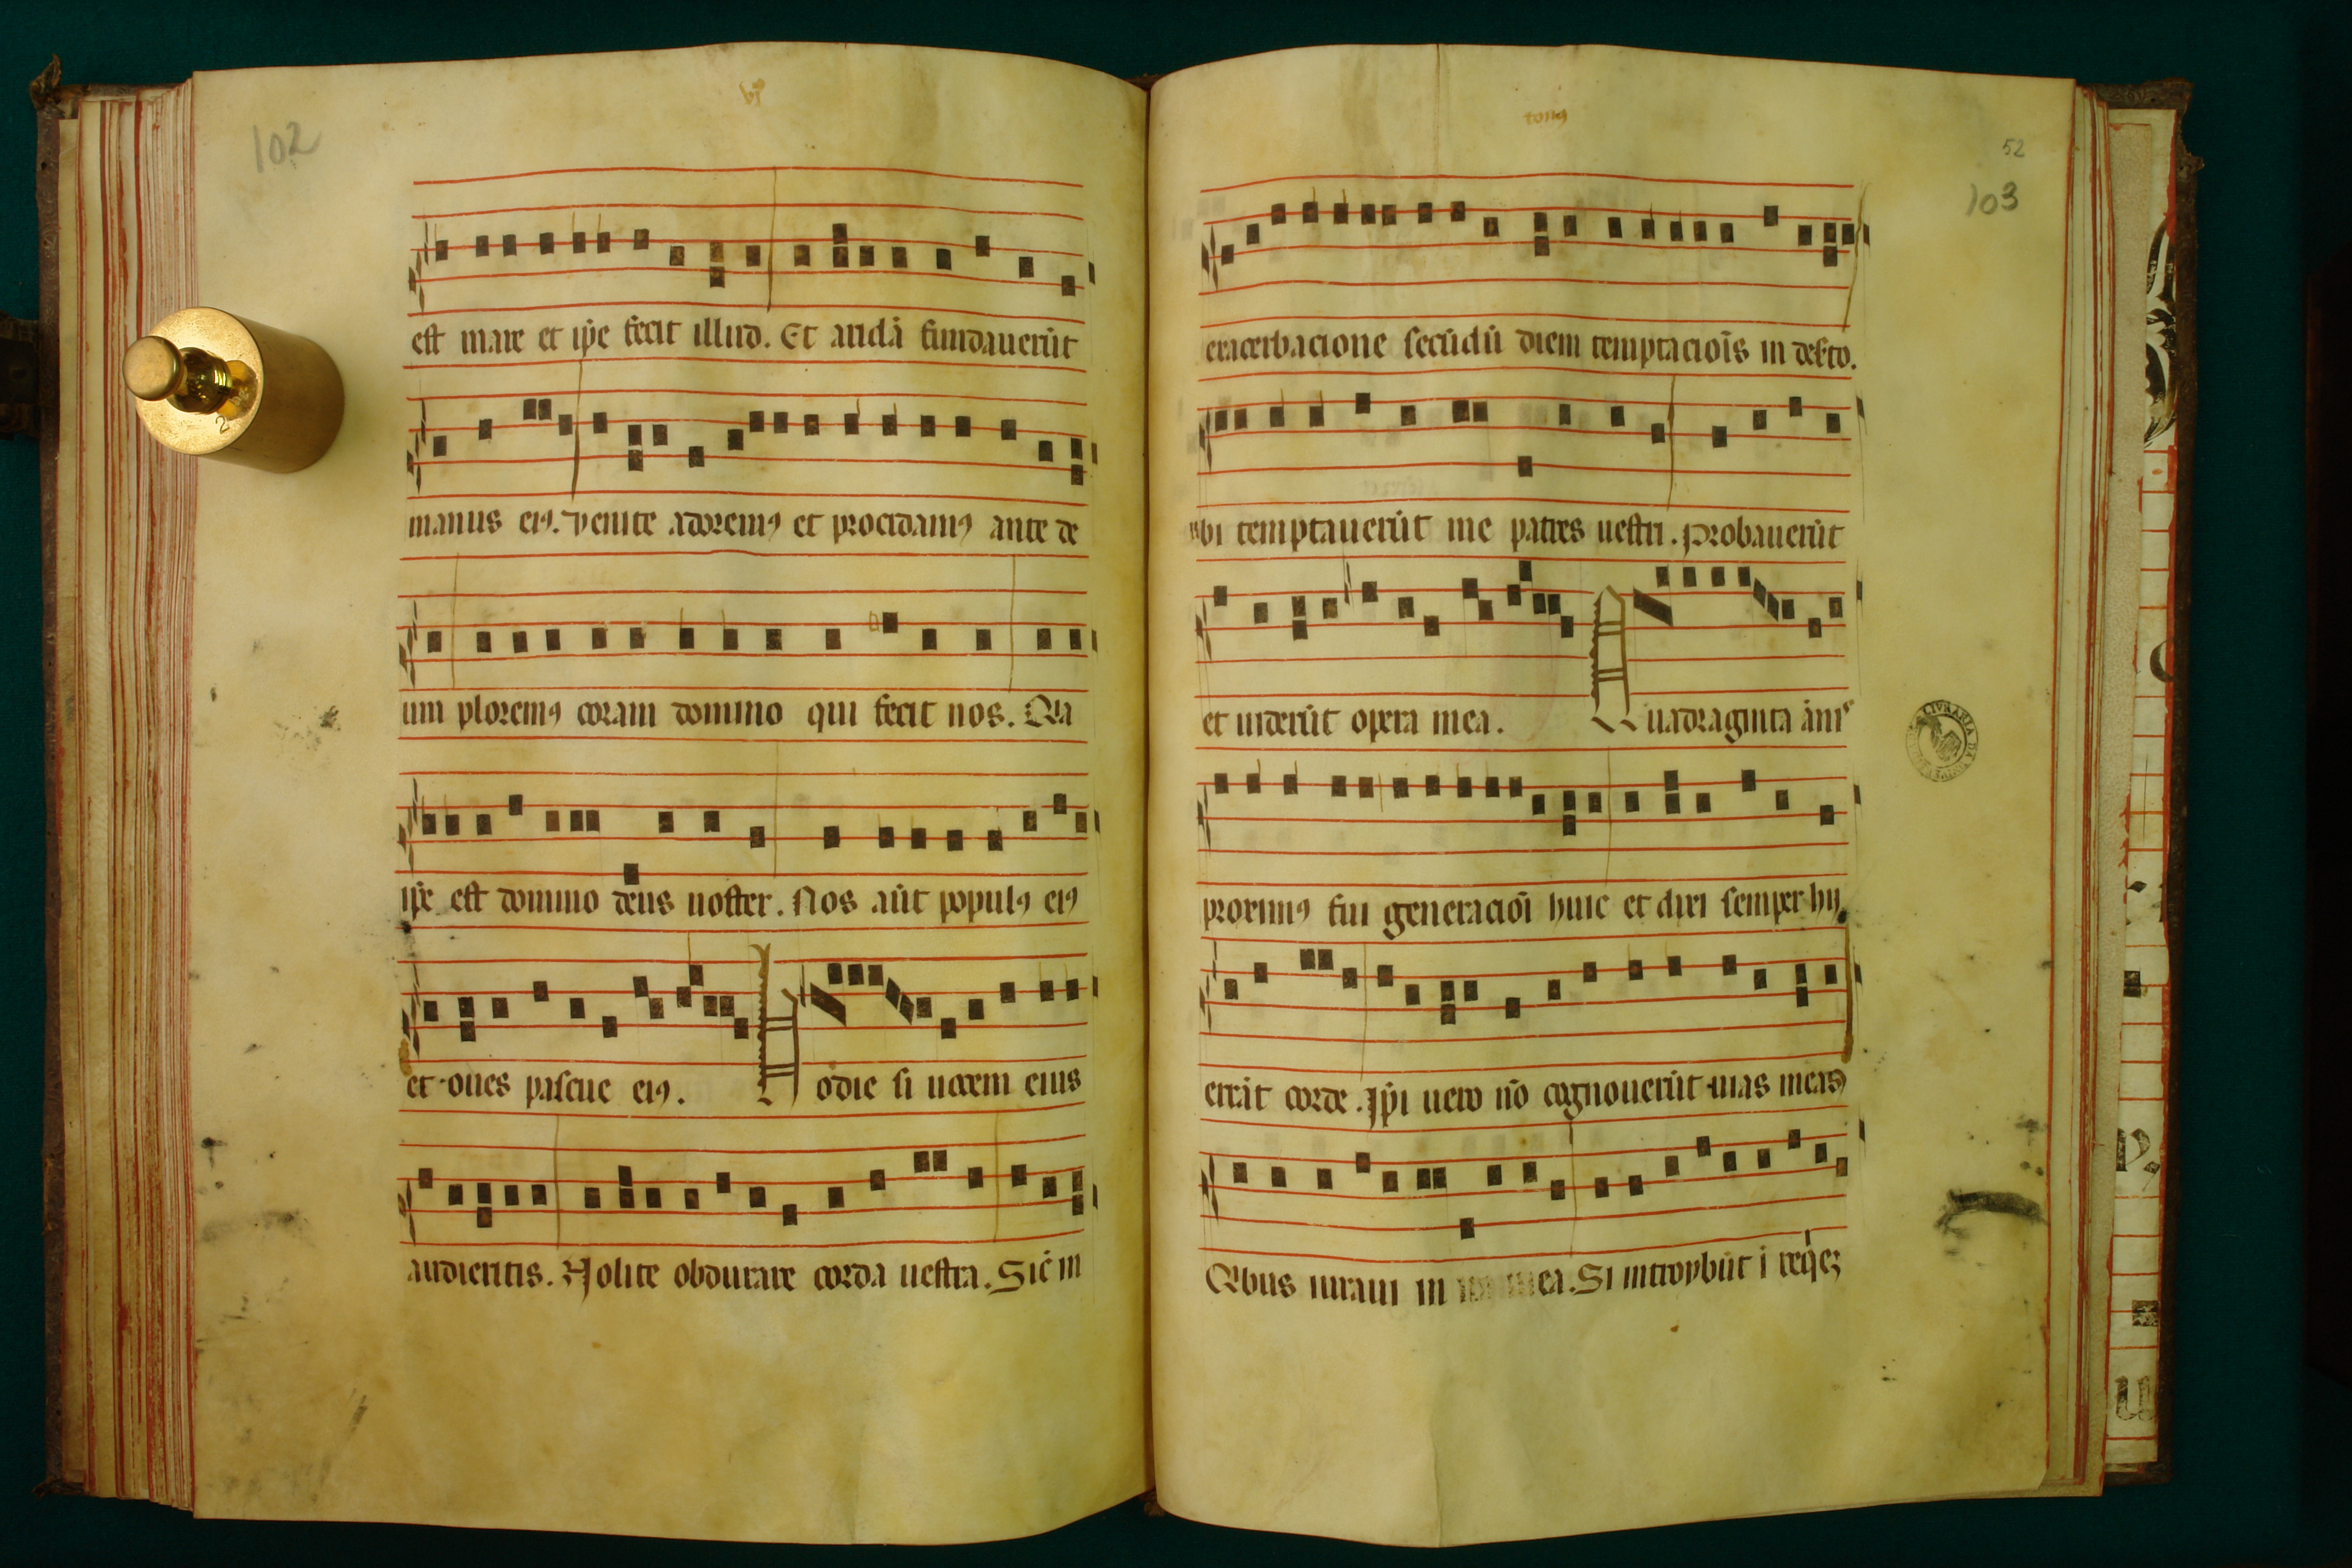 102
bj
est mare et ip̄e fecit illud. Et aridā fundauerūt
manus eiꝰ. venite adoremꝰ et procidamꝰ ante de
um ploremꝰ coram domino qui fecit nos. Qia
ip̄e est domino deus noster. Nos aūt populꝰ eiꝰ
et oues pascue eiꝰ. Hodie si uocem eius
audieritis. Nolite obdurare corda uestra. Sic̄ in
tonꝰ
52
103
exacerbacione secūdū diem temptacioīs in des̄to.
vbi temptauerūt me patres uestri. Probauerūt
et uiderūt opera mea. Quadraginta ānis
proximꝰ fui generacioī huic et dixi semper hij
errāt corde. Ip̄i uero nō cognouerūt uias meas
Qibus iuraui in mea. Si introybūt ī req̇eꝫ